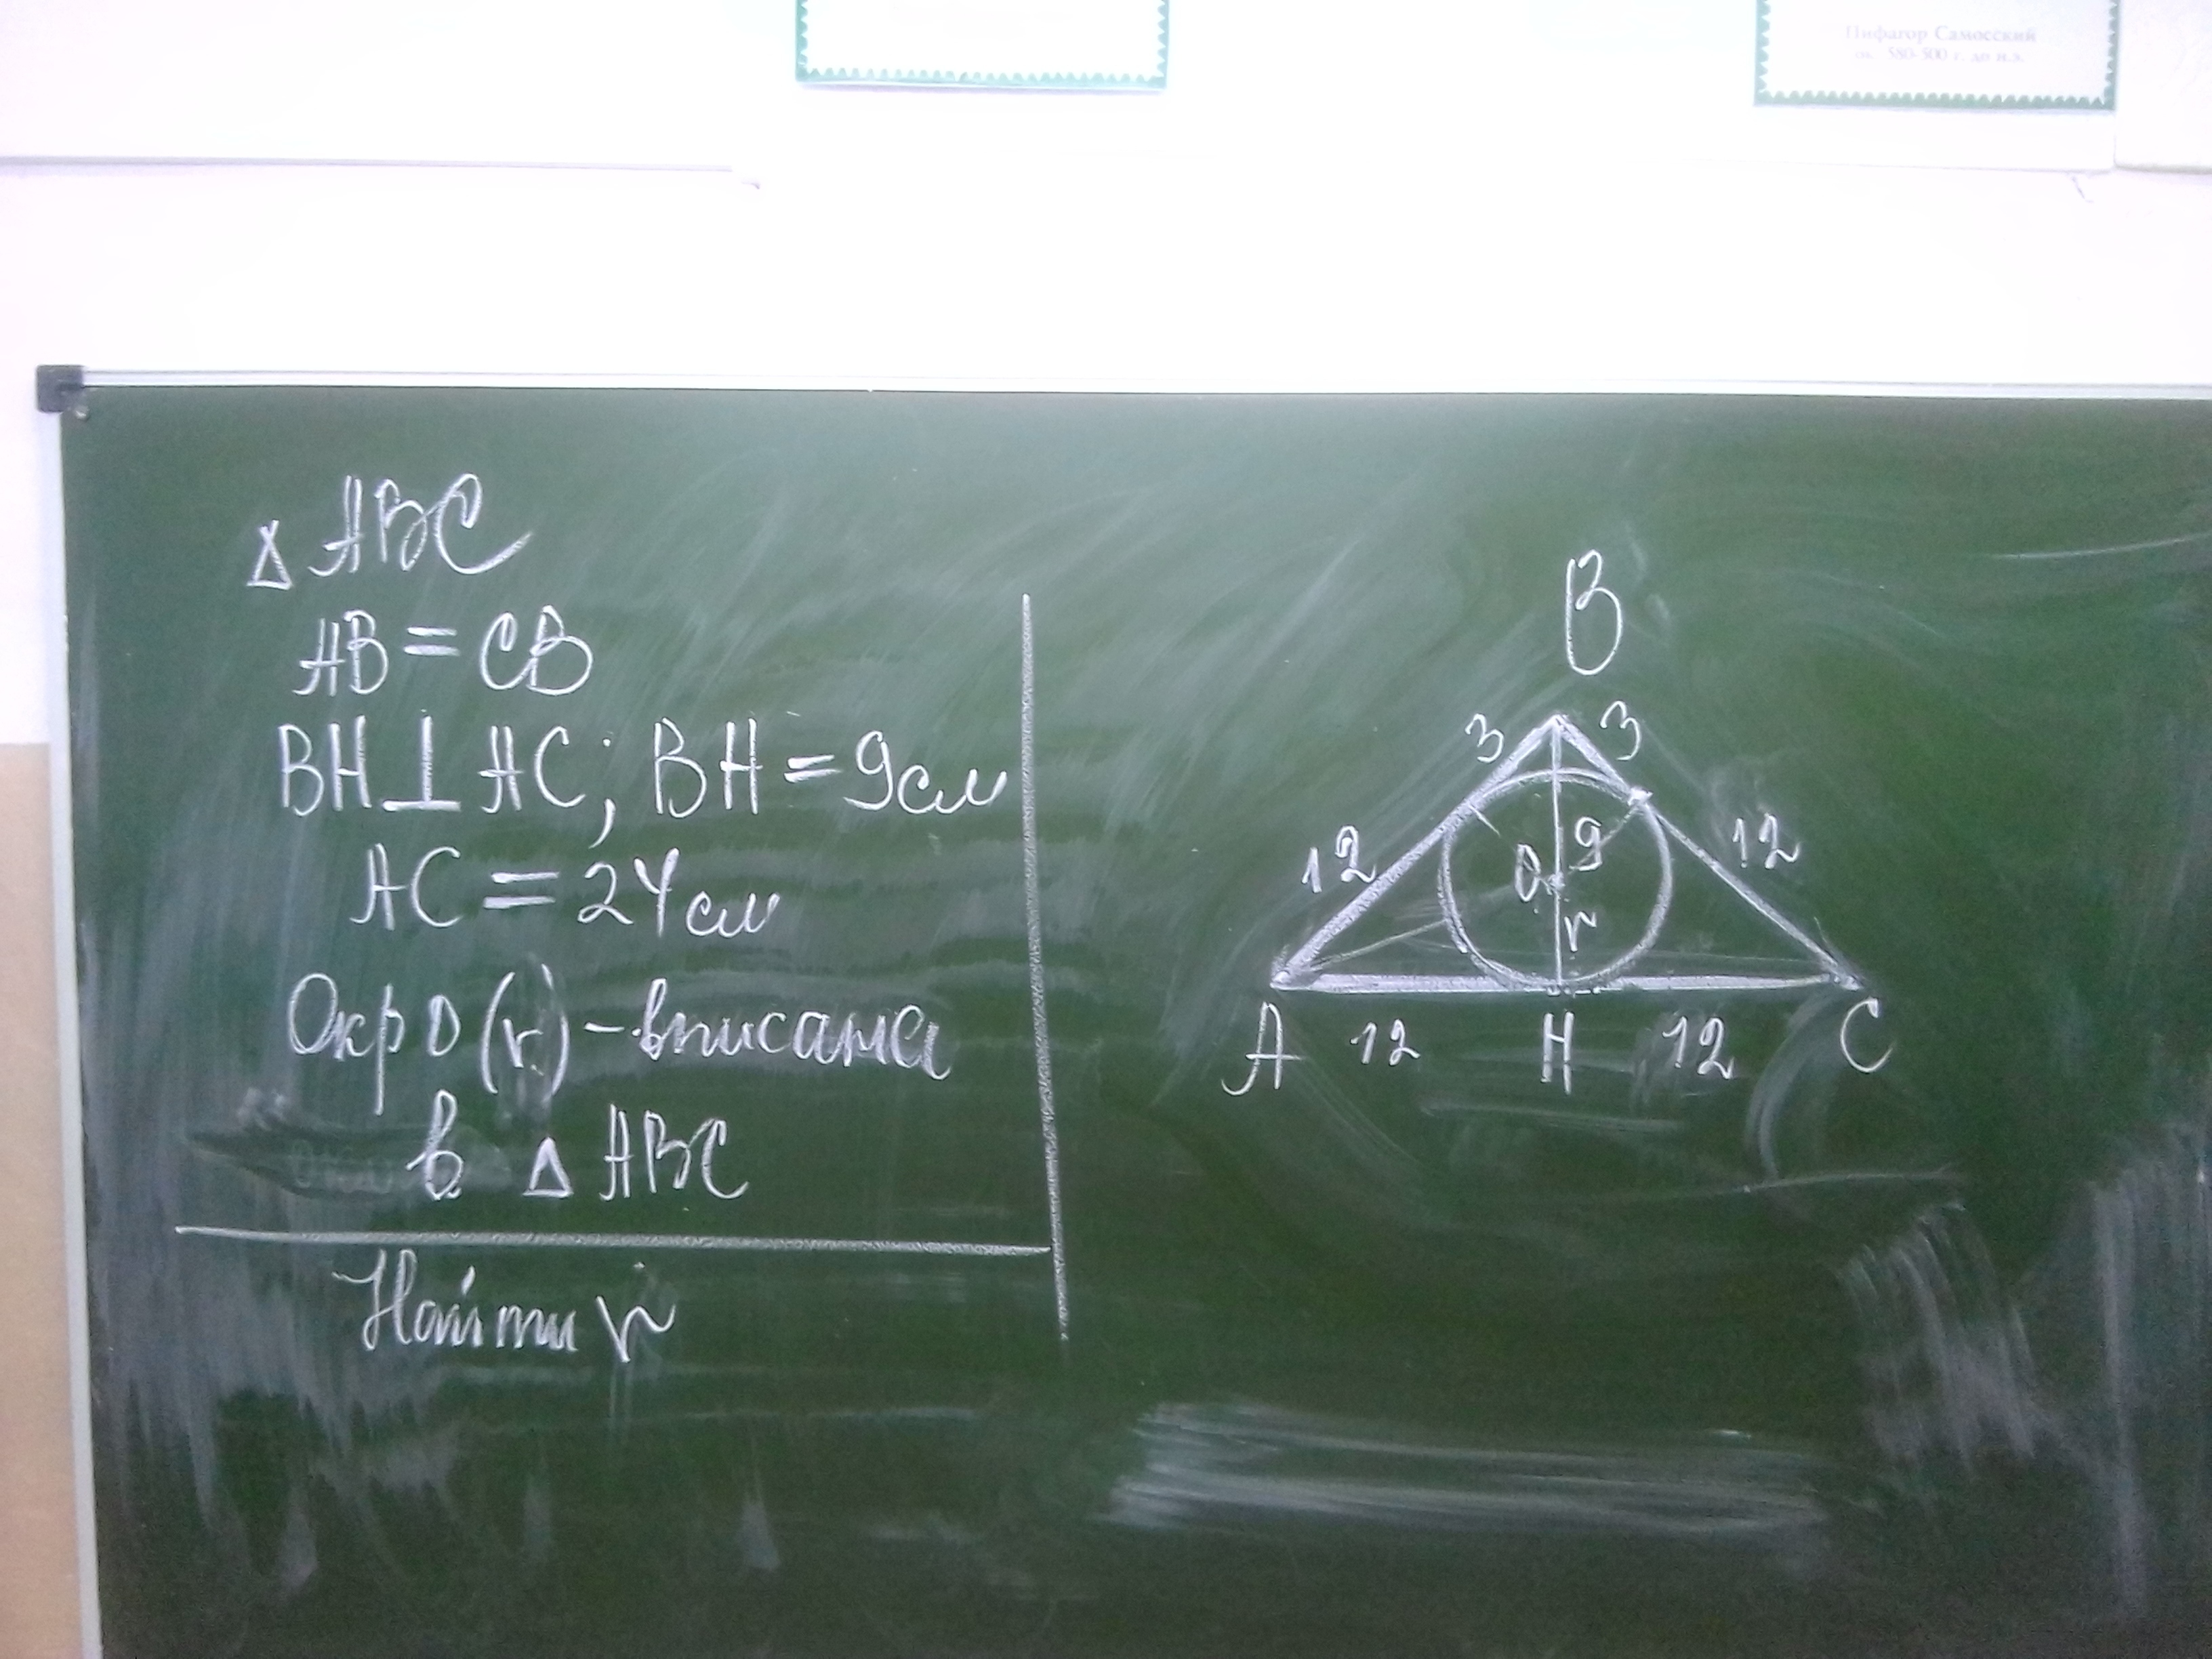 Пифагор Самосский
ок. 580-500 г. до н.э.
Δ ABC
AB = CB
BH⊥AC; BH = 9см
AC = 24см
Окр O (r) - вписана
в Δ ABC
Найти r
B
3 3
12 O 9 12
r
A 12 H 12 C